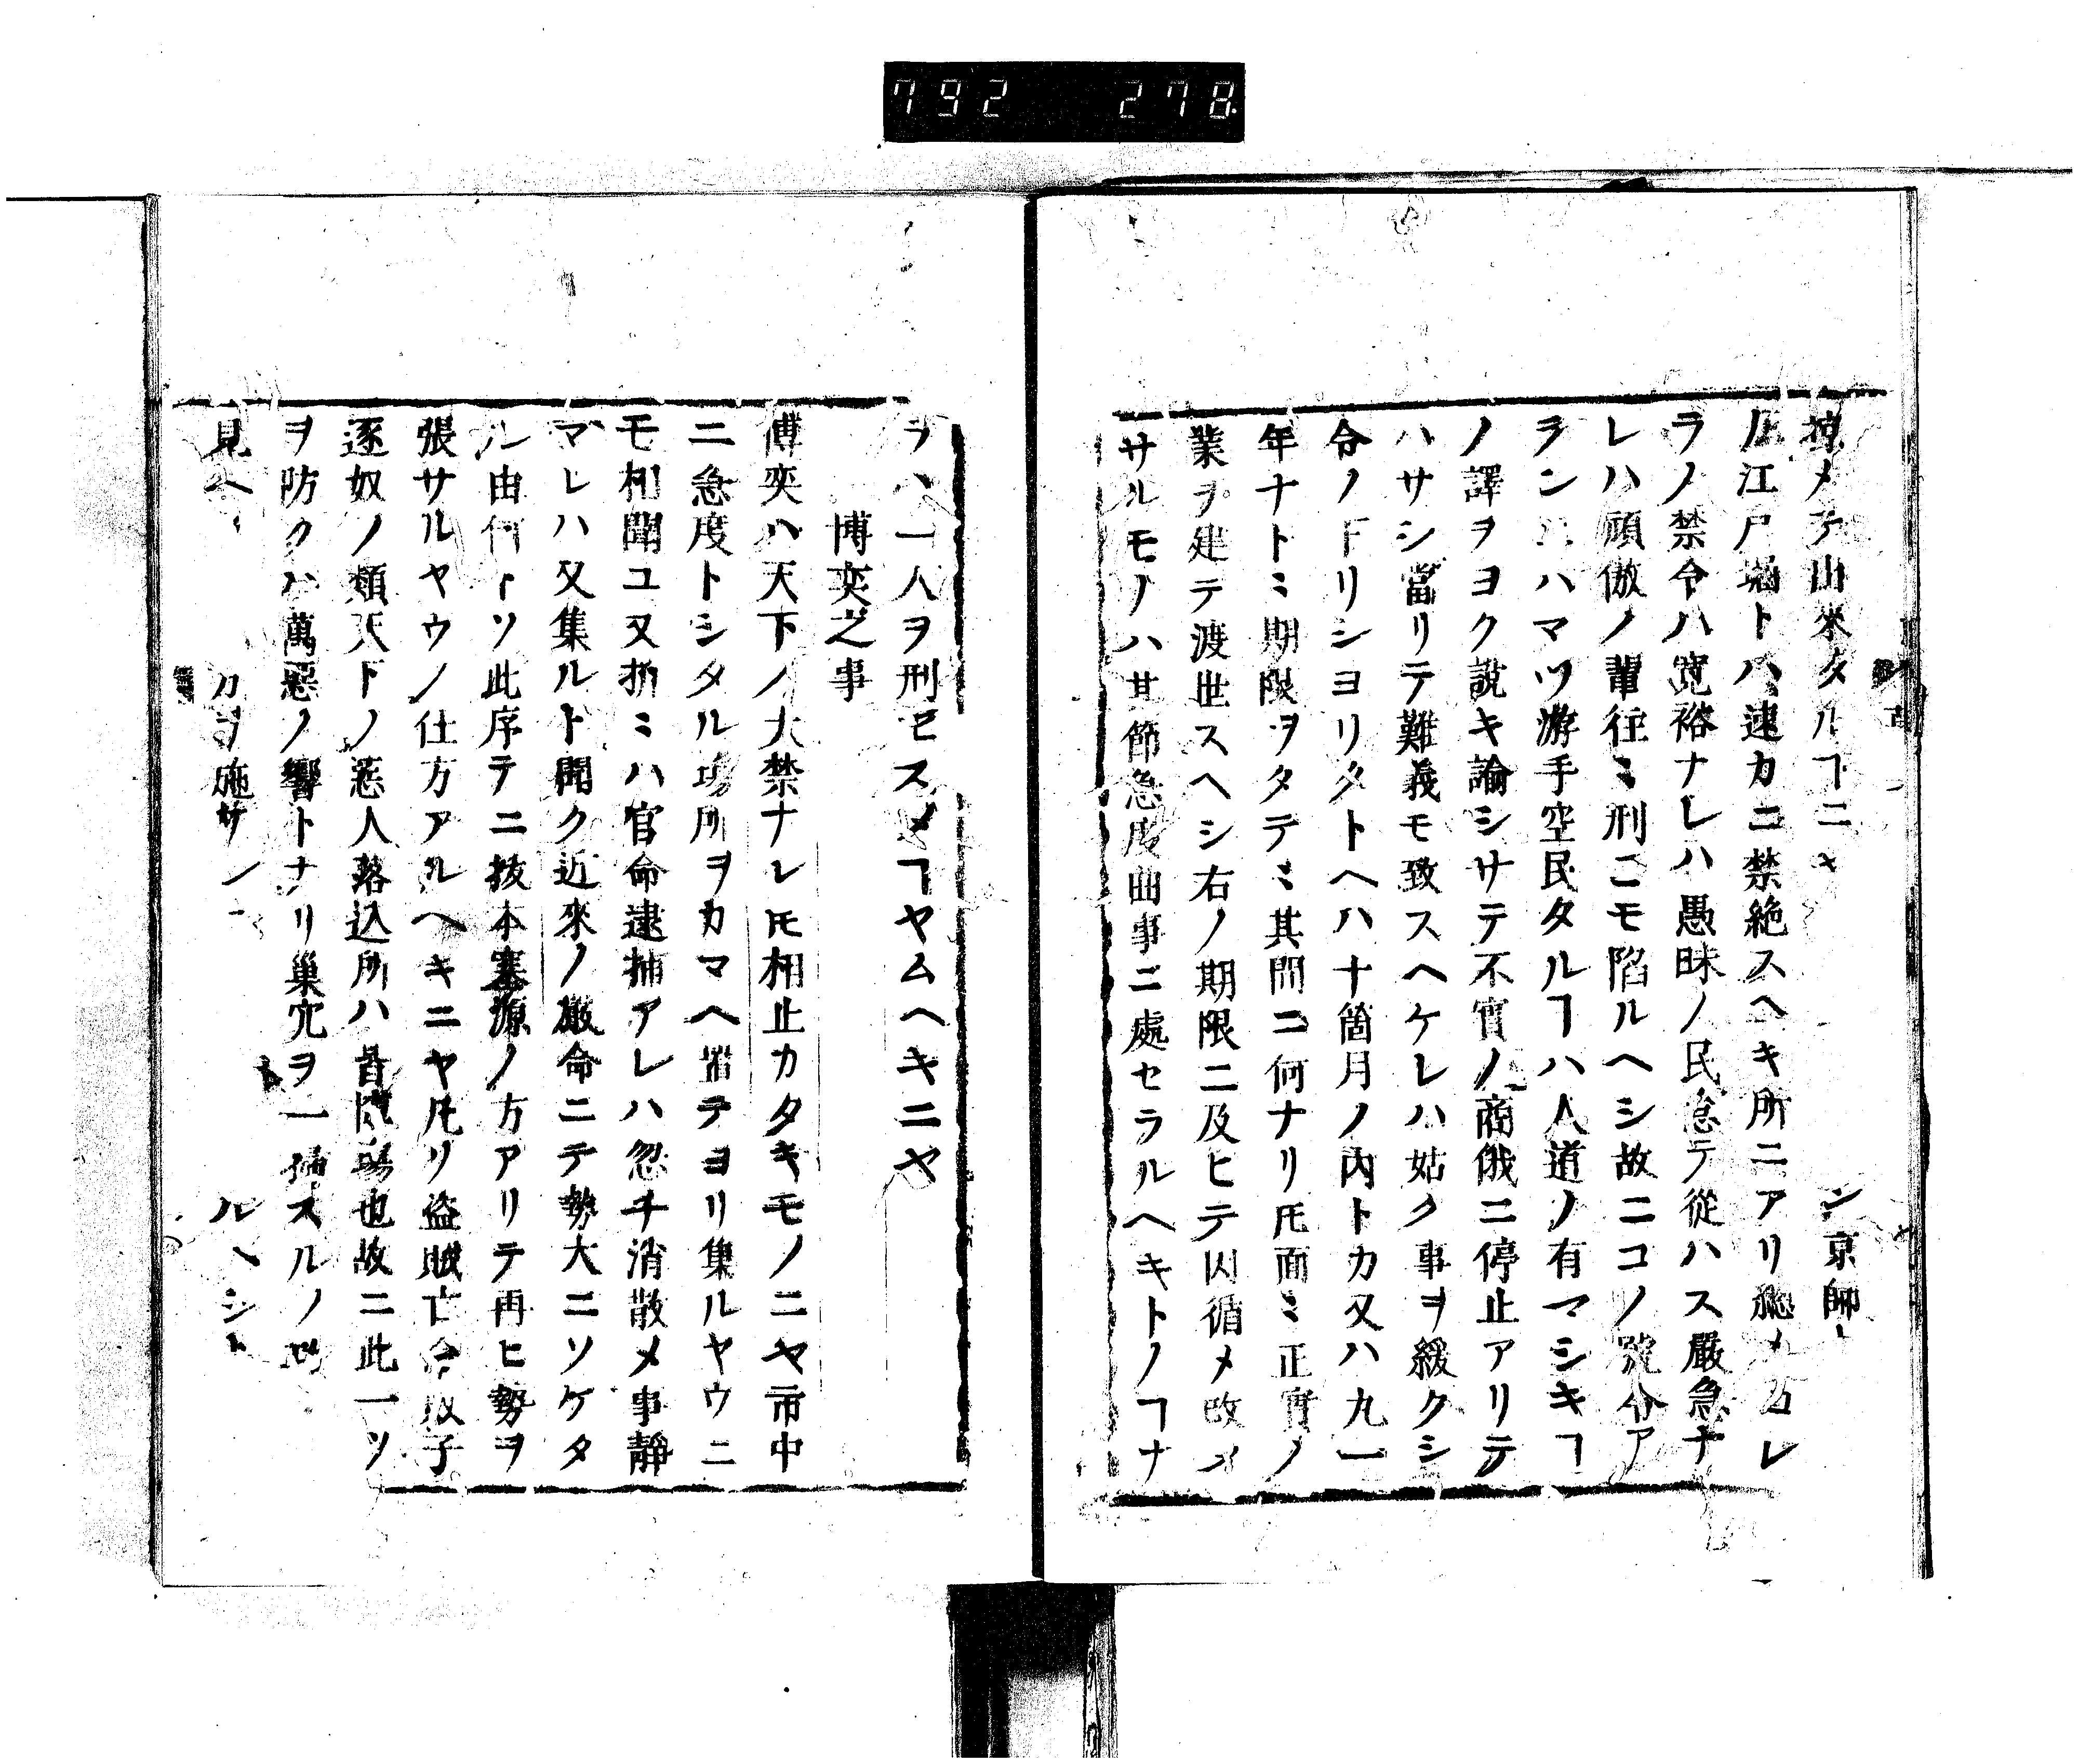 792 278
メテ出來タルヿニ シ京師
江戸 トハ速カニ禁絶スヘキ所ニアリ レ
ラノ禁令ハ寛裕ナレハ愚昧ノ民怠テ從ハス嚴急ナ
レハ頑傲ノ輩往ミ刑ニモ陷ルヘシ故ニコノ號令ア
ランニハマツ游手空民タルヿハ人道ノ有マシキヿ
ノ譯ヲヨク説キ諭シサテ不實ノ商俄ニ停止アリテ
ハサシ當リテ難義モ致スヘケレハ姑ク事ヲ緩クシ
令ノ下リシヨリタトヘハ十箇月ノ内トカ又ハ九一
年ナトミ期限ヲタテミ其間ニ何ナリ𪜈面ミ正實ノ
業ヲ建テ渡世スヘシ右ノ期限ニ及ヒテ因循メ改メ
サルモノハ其節急度曲事ニ處セラルヘキトノヿナ
ラハ一人ヲ刑セスメヿヤムヘキニヤ
博奕之事
博奕ハ天下ノ大禁ナレ𪜈相止カタキモノニヤ市中
ニ急度トシタル塲所ヲカマヘ置テヨリ集ルヤウニ
モ相聞ユ又折ミハ官命逮捕アレハ忽チ消散メ事靜
マレハ又集ルト聞ク近來ノ嚴命ニテ勢大ニソケタ
ル由何トソ此序テニ拔本塞源ノ方アリテ再ヒ勢ヲ
張サルヤウノ仕方アルヘキニヤ凡ソ盗賊亡命 子
逐奴ノ類天下ノ惡人落込所ハ皆 塲也故ニ此一ツ
ヲ防クハ萬惡ノ響トナリ巢穴ヲ一掃スルノ
見ヘ 力ヲ施サン ルヘシト